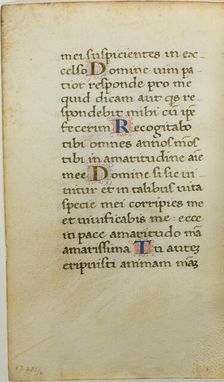 mei suspicientes in ex
celso Domine uim pa
tior responde pro me
quid dicam aut qs re
spondebit mihi cũ ip̃e
fecerim Recogitabo
tibi omnes annos mos
tibi in amaritudine aĩe
mee Domine si sic ui
uitur et in talibus uita
spẽ mei corripies me
et uiuificabis me : ecce
in pace amaritudo mã
amarissima Tu autẽ
eripuisti animam mãz